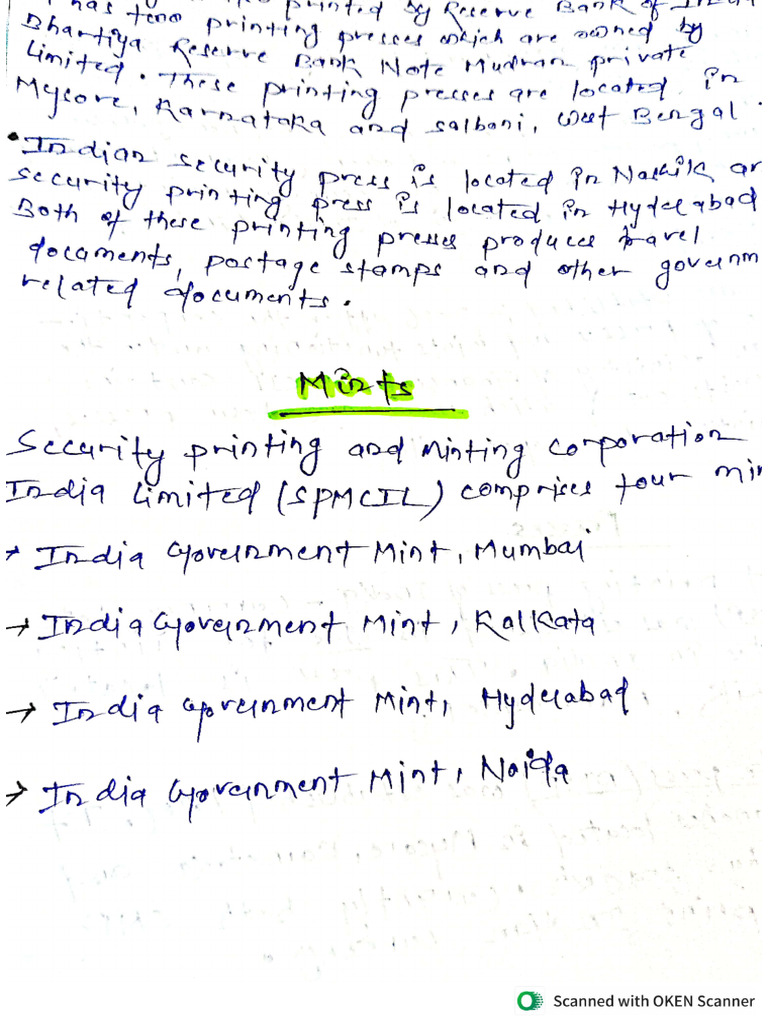 has two printing presses which are owned by
Bhartiya Reserve Bank Note Mudran private
Limited. These printing presses are located in
Mysore, Karnataka and salbani, West Bengal.
• Indian security press is located in Nashik
security printing press is located in Hyderabad
Both of these printing presses produces travel
documents, postage stamps and other governm
related documents.
Mints
Security printing and Minting corporation
India Limited (SPMCIL) comprises four min
→ India Government Mint, Mumbai
→ India Government Mint, Kalkata
→ India Government Mint, Hyderabad
→ India Government Mint, Noida
Scanned with OKEN Scanner